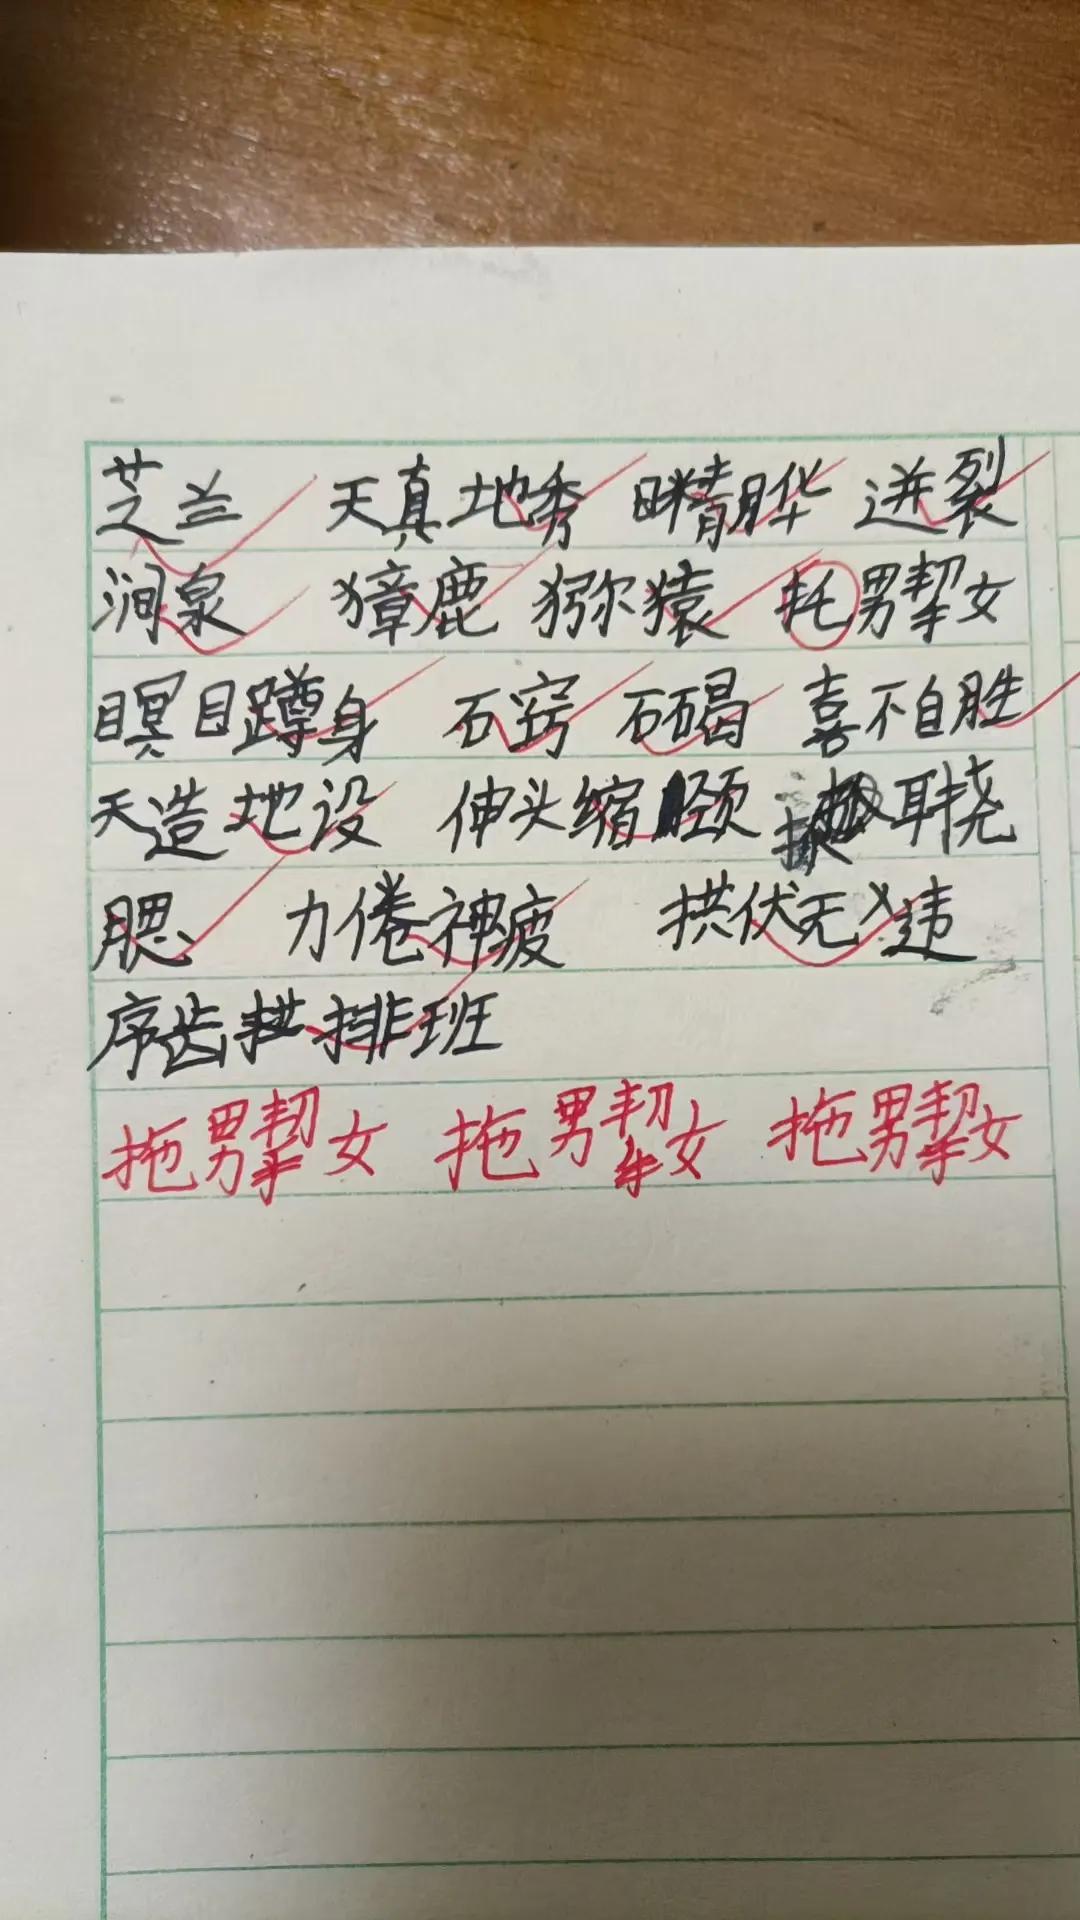 芝兰 天真地秀 日精月华 迸裂
涧泉 獐鹿 猕猿 托男挈女
瞑目蹲身 石窍 石碣 喜不自胜
天造地设 伸头缩颈 抓耳挠
腮 力倦神疲 拱伏无违
序齿排班
拖男挈女 拖男挈女 拖男挈女